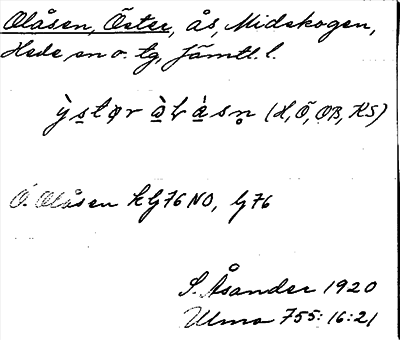 Olåsen, Öster, ås, Midskogen,
Hede, sn o. tg, Jämtl. l.
ỳstǫr ò̱ƚà̱sn̥ (H, Ö, OB, KS)
Ö. Olåsen kG76NO, G76
S. Åsander 1920
Ulma 755:16:21